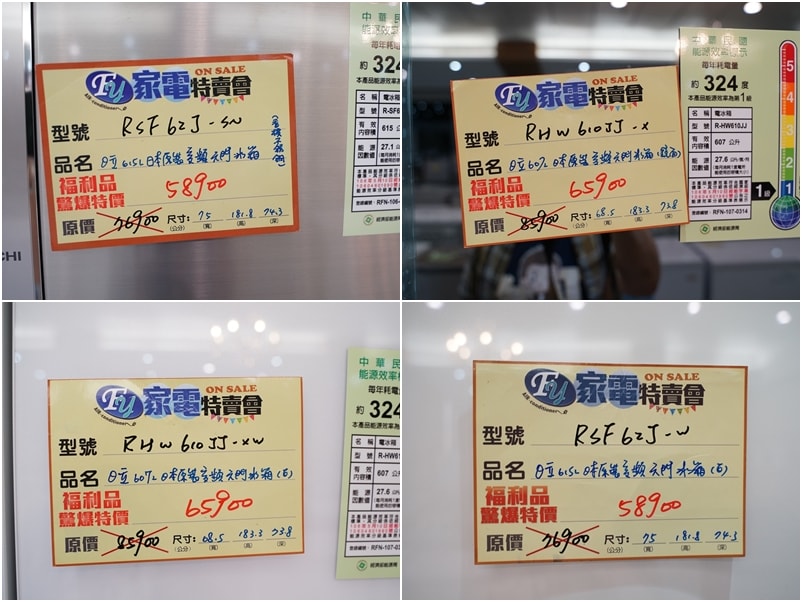 FU 家電特賣會 ON SALE
型號 RSF62J-SN
品名 日立615L日本原裝變頻六門冰箱
福利品
驚爆特價 58900
原價 76900 尺寸: 75 181.8 74.3
(公分) (寬) (高) (深)
中華民
能源效率
每年耗電
約 324
本產品能源效率為
名稱 電冰箱
型號 R-SF6
有效內容積 615
能源因數值 27.1
RFN-106-
CHI
FU 家電特賣會 ON SALE
型號 RHW610JJ-X
品名 日立607L日本原裝變頻六門冰箱(鏡面)
福利品
驚爆特價 65900
原價 85900 尺寸: 68.5 183.3 73.8
(公分) (寬) (高) (深)
中華民國
能源效率標示
每年耗電量
約 324 度
本產品能源效率為第1級
名稱 電冰箱
型號 R-HW610JJ
有效內容積 607 公升
能源因數值 27.6
RFN-107-0314
經濟部能源局
5
4
3
2
1
1級
FU 家電特賣會 ON SALE
air-conditioner
型號 RHW610JJ-XW
品名 日立607L日本原裝變頻六門冰箱(白)
福利品
驚爆特價 65900
原價 85900 尺寸: 68.5 183.3 73.8
(公分) (寬) (高) (深)
中華民
能源效率
每年耗電
約 324
本產品能源效率為
名稱 電冰箱
型號 R-HW61
有效內容積 607 公升
能源因數值 27.6
RFN-107-03
經濟部能源局
FU 家電特賣會 ON SALE
air-conditioner
型號 RSF62J-W
品名 日立615L日本原裝變頻六門冰箱(白)
福利品
驚爆特價 58900
原價 76900 尺寸: 75 181.8 74.3
(公分) (寬) (高) (深)